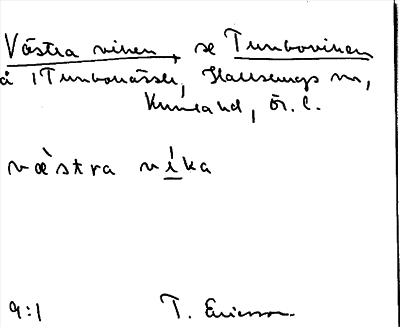 Västra viken, se Tunboviken
å 1 Tunbonässk, Hallsbergs sn,
Kumla hd, ör. l.
væ̀stra vika
9:1 T. Ericsson